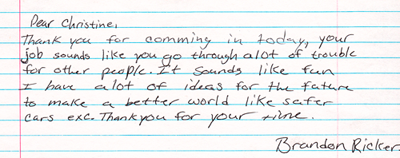 Dear Christine,
Thank you for comming in today, your
job sounds like you go through alot of trouble
for other people. It sounds like fun
I have alot of ideas for the future
to make a better world like safer
cars exc. Thank you for your time.
Brandon Ricker